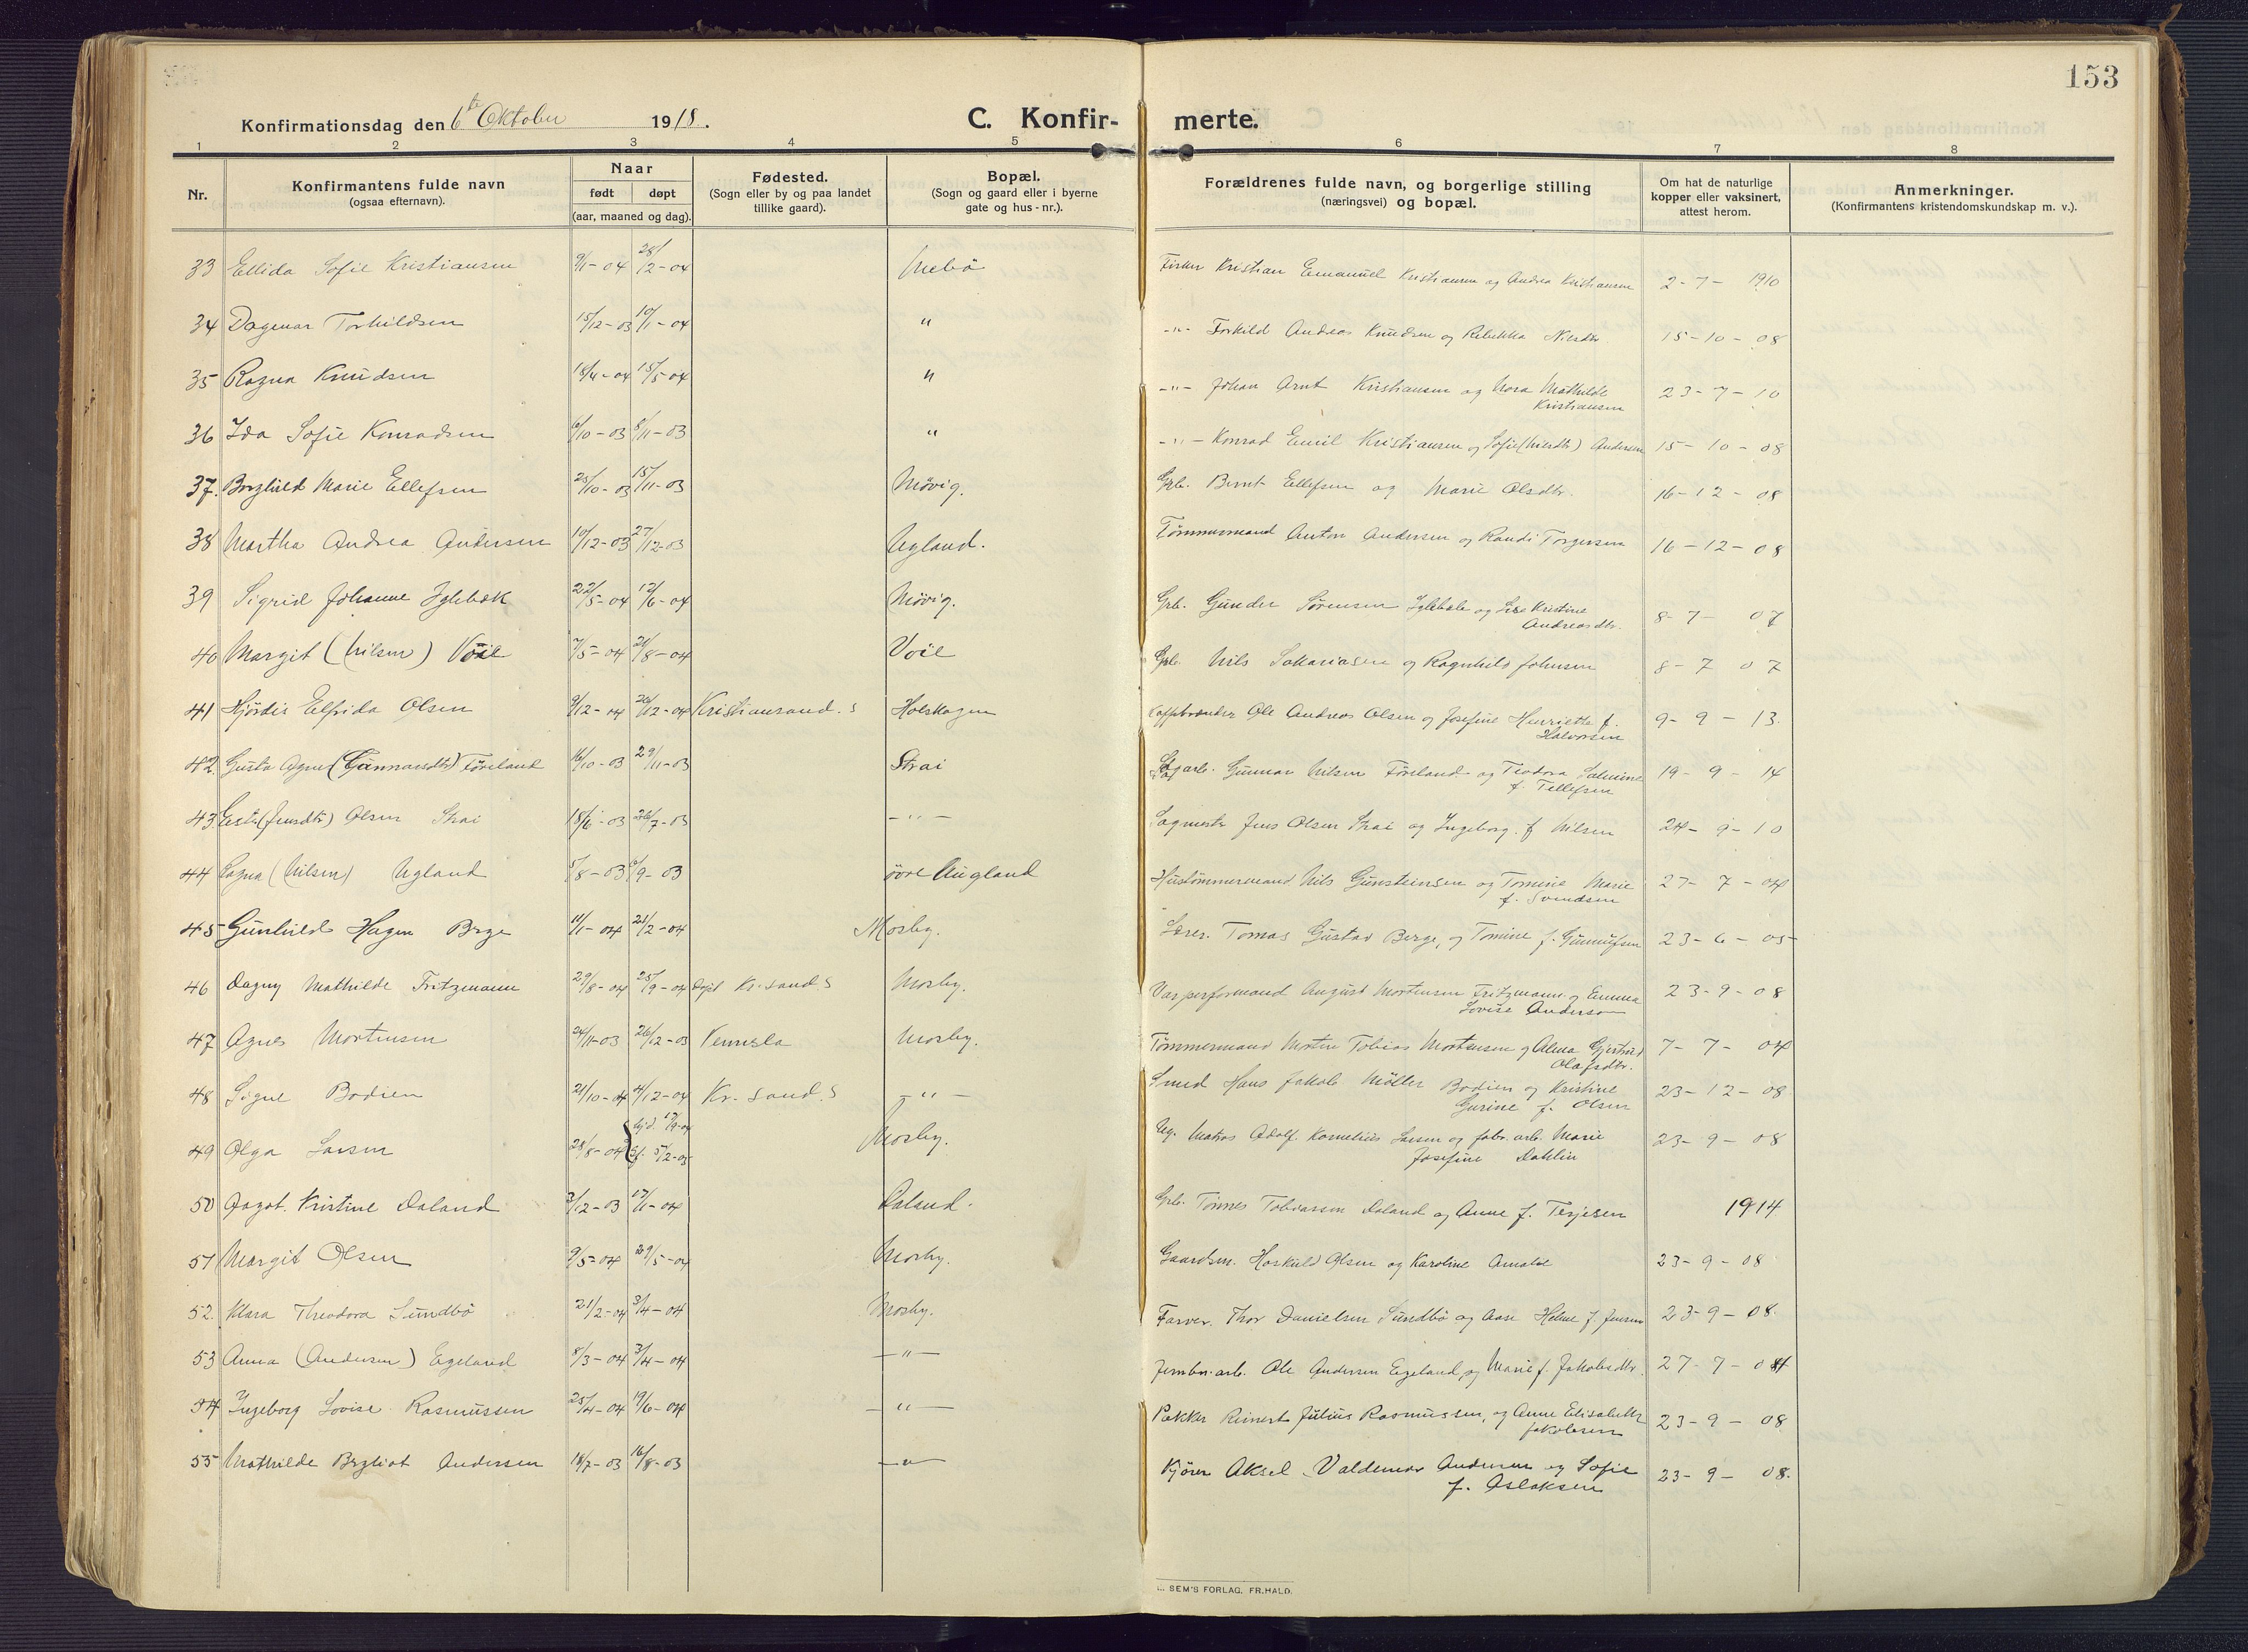 153
Konfirmationsdag den 6te Oktober 1918.
C. Konfir- merte.
1 2 3 4 5 6 7 8
Nr.
Konfirmantens fulde navn
(ogsaa efternavn).
Naar
født døpt
(aar, maaned og dag).
Fødested.
(Sogn eller by og paa landet
tillike gaard).
Bopæl.
(Sogn og gaard eller i byerne
gate og hus-nr.).
Forældrenes fulde navn, og borgerlige stilling
(næringsvei) og bopæl.
Om hat de naturlige
kopper eller vaksinert,
attest herom.
Anmerkninger.
(Konfirmantens kristendomskundskap m. v.).
33 Ellida Sofie Kristiansen 9/1-04 28/12-04 Kristian Emanuel Kristiansen og Andrea Kristiansen 2-7-1910
34 Dagmar Torkildsen 15/12-03 10/1-04 " -"- Torkild Andreas Knudsen og Rebekka Nilsdtr. 15-10-08
35 Ragna Knudsen 18/4-04 15/5-04 " -"- Johan Arnt Kristiansen og Nora Mathilde
Kristiansen 23-7-10
36 Ida Sofie Konradsen 6/10-03 8/11-03 " -"- Konrad Emil Kristiansen og Sofie (Nilsdtr) Andersen 15-10-08
37. Borghild Marie Ellefsen 25/10-03 15/11-03 Møvig. Grb. Bernt Ellefsen og Marie Olsdtr. 16-12-08
38 Martha Andrea Andersen 10/12-03 27/12-03 Ugland. Tømmermand Anton Andersen og Randi Torgersen 16-12-08
39 Sigrid Johanne Iglebæk 22/5-04 12/6-04 Møvig. Grb. Gunder Sørensen Iglebæk og Lise Kristine
Andreasdtr. 8-7-07
40 Margit (Nilsen) Voie 7/5-04 21/8-04 Voie Grb. Nils Sakariasen og Ragnhild Johnsen 8-7 07
41 Hjørdis Elfrida Olsen 9/12-04 26/12-04 Kristiansand. S Holskogen Ole Andreas Olsen og Josefine Henriette f.
Halvorsen 9-9-13.
42. Gusta Agnes (Gunnarsdtr) Føreland 16/10-03 29/11-03 Strai Gunnar Nilsen Føreland og Teodora Salmine
f. Tellefsen 19-9-14
43 Ester (Jensdtr) Olsen Strai 18/6-03 26/7-03 -"- Sagmestr Jens Olsen Strai og Ingeborg f. Nilsen 24-9-10
44 Lagna (Nilsen) Ugland 5/8-03 6/9-03 øvre Augland Hustømmermand Nils Gunsteinsen og Tomine Marie
f. Svendsen 27-7-04
45 Gunhild Hagen Berge 11/1-04 21/2-04 Mosby. Lærer. Tomas Gustav Berge, og Tomine f. Gunnufsen 23-6-05
46 Dagny Mathilde Fritzmann 29/8-04 25/9-04 Døpt Kr.sand S Mosby. August Mortensen Fritzmann og Emma
Lovise Anderson 23-9-08
47 Agnes Mortensen 24/11-03 26/12-03 Vennesla Mosby. Tømmermand Morten Tobias Mortensen og Alma Gjertrud
Olafsdtr. 7-7-04
48 Signe Bodien 21/10-04 4/12-04 Kr.sand. S -"- Smed Hans Jakob Møller Bodien og Kristine
Gurine f. Olsen 23-12-08
49 Olga Larsen 28/8-04 hjd. 17/9-04
St. 5/2-05 Mosby. Ug. Matros Adolf Kornelius Larsen og fabr.arb. Marie
Josefine Dahlin 23-9-08
50 Aagot Kristine Daland 3/12-03 17/1-04 Daland. Grb. Tønnes Tobiassen Daland og Anne f. Terjesen 1914
51 Margit Olsen 9/5-04 29/5-04 Mosby. Gaardsm. Hoskuld Olsen og Karoline Amalie 23-9-08
52. Klara Theodora Sundbø 21/2-04 3/4-04 Mosby. Farver. Thor Danielsen Sundbø og Aase Helene f. Jensen 23-9-08.
53 Anna (Andersen) Egeland 8/3-04 3/4-04 -"- Jernbn.arb. Ole Andersen Egeland og Marie f. Jakobsdtr. 27-7-04
54 Ingeborg Lovise Rasmussen 25/4-04 19/6-04 -"- Pakker Reinert Julius Rasmussen, og Anne Elisabeth
Jakobsen 23-9-08
55 Mathilde Bergliot Andersen 18/7-03 16/8-03 -"- Kjører Aksel Valdemar Andersen og Sofie
f. Aslaksen 23-9-08.
SEM'S FORLAG, FR.HALD.